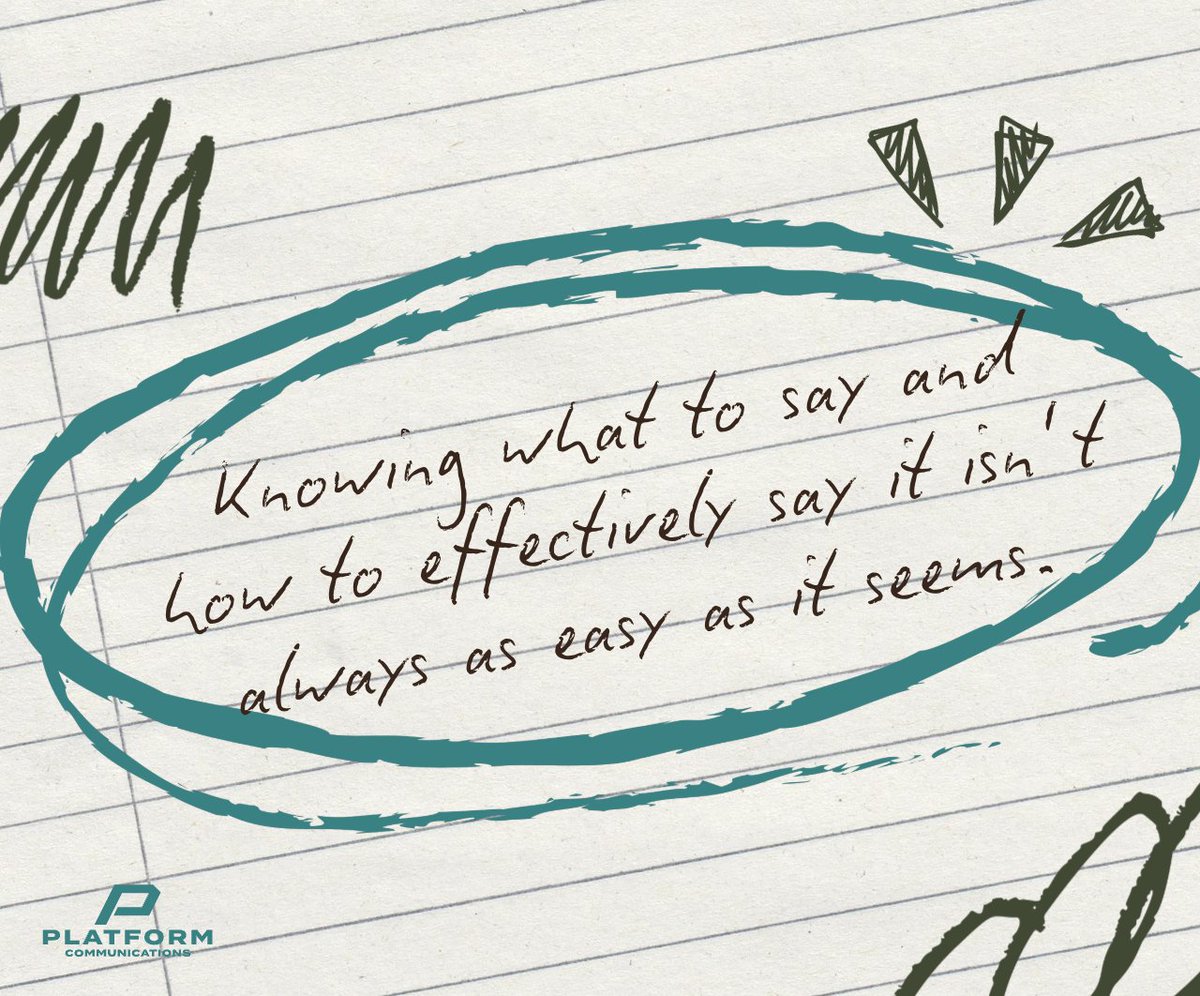 Knowing what to say and
how to effectively say it isn't
always as easy as it seems.
PLATFORM
COMMUNICATIONS